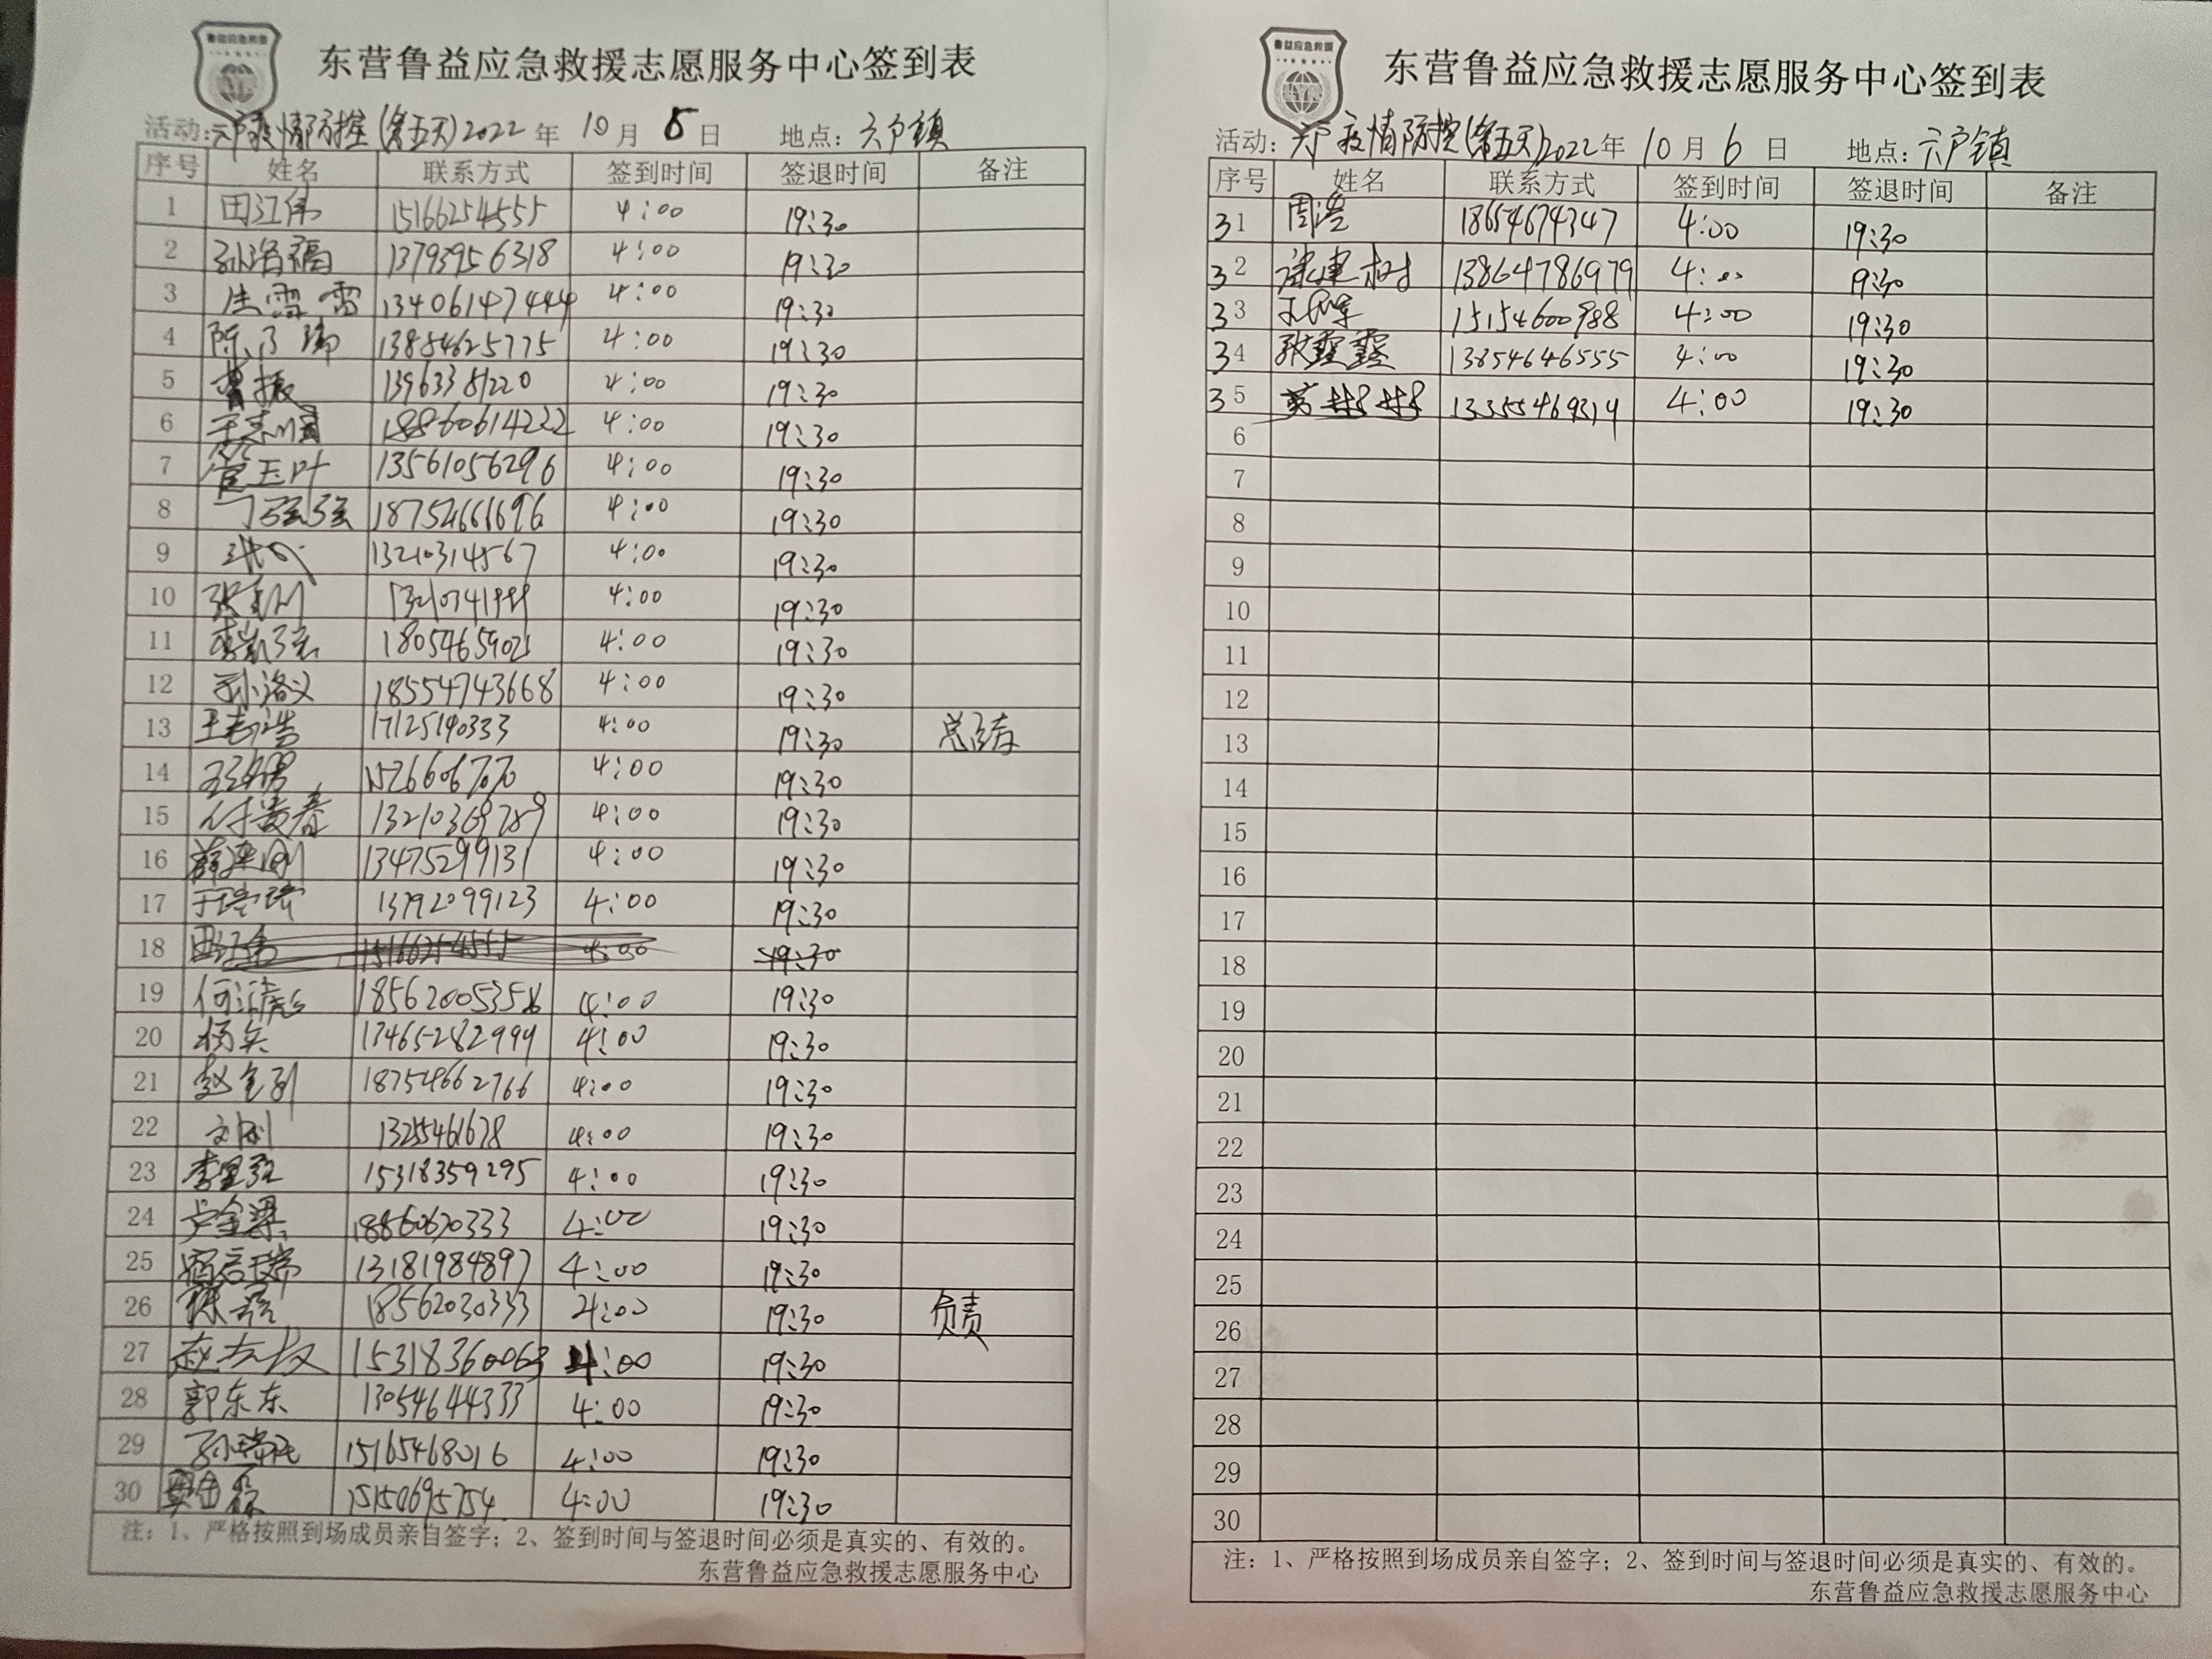 鲁益应急救援
东营鲁益应急救援志愿服务中心签到表
活动:六户疫情防控(第五天)2022年 10月 日 地点:六户镇
序号 姓名 联系方式 签到时间 签退时间 备注
1 田江伟 15166254555 4:00 19:30
2 孙洛福 13793956318 4:00 19:30
3 生雪雷 13406147444 4:00 19:30
4 13854625775 4:00 19:30
5 曹振 13963381220 4:00 19:30
6 18860614222 4:00 19:30
7 管玉叶 13561056296 4:00 19:30
8 丁强强 18754661696 4:00 19:30
9 13210314567 4:00 19:30
10 4:00 19:30
11 李凯强 18054659021 4:00 19:30
12 孙洛义 18554743668 4:00 19:30
13 王志浩 17125190333 4:00 19:30
14 4:00 19:30
15 付贵春 13210369789 4:00 19:30
16 薛建刚 13475299131 4:00 19:30
17 于瑞瑞 13792099123 4:00 19:30
18 田江伟 15166254555 4:00 19:30
19 何清彪 4:00 19:30
20 杨矣 13465282999 4:00 19:30
21 赵金列 18754662766 4:00 19:30
22 文刚 4:00 19:30
23 15318359295 4:00 19:30
24 卢金梁 18860620333 4:00 19:30
25 13181984897 4:00 19:30
26 18562030333 4:00 19:30 负责
27 赵志友 15318360063 4:00 19:30
28 郭东东 13054644333 4:00 19:30
29 15165468016 4:00 19:30
30 15150695754 4:00 19:30
注:1、严格按照到场成员亲自签字;2、签到时间与签退时间必须是真实的、有效的。
东营鲁益应急救援志愿服务中心
鲁益应急救援
东营鲁益应急救援志愿服务中心签到表
活动:六户疫情防控(第五天)2022年 10月 6日 地点:六户镇
序号 姓名 联系方式 签到时间 签退时间 备注
31 周浩 18654674347 4:00 19:30
32 建树 13864786979 4:00 19:30
33 15154600988 4:00 19:30
34 张霞霞 13854646555 4:00 19:30
35 4:00 19:30
6
7
8
9
10
11
12
13
14
15
16
17
18
19
20
21
22
23
24
25
26
27
28
29
30
注:1、严格按照到场成员亲自签字;2、签到时间与签退时间必须是真实的、有效的。
东营鲁益应急救援志愿服务中心